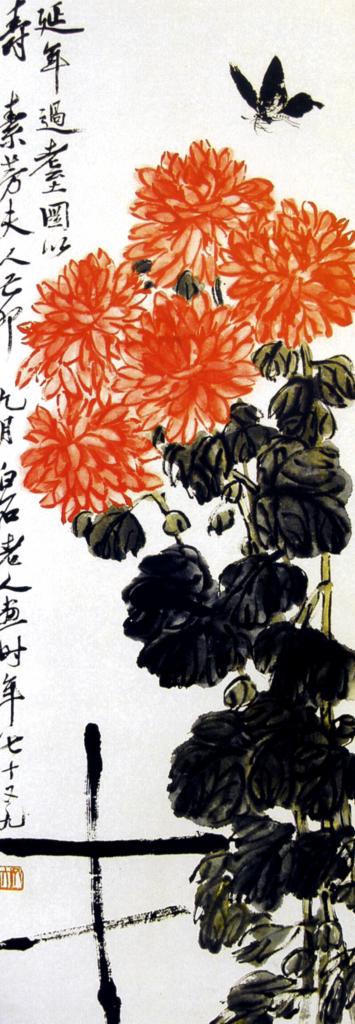 延年過耋圖以
壽 素芳夫人己卯 九月 白石老人畫時年七十又九